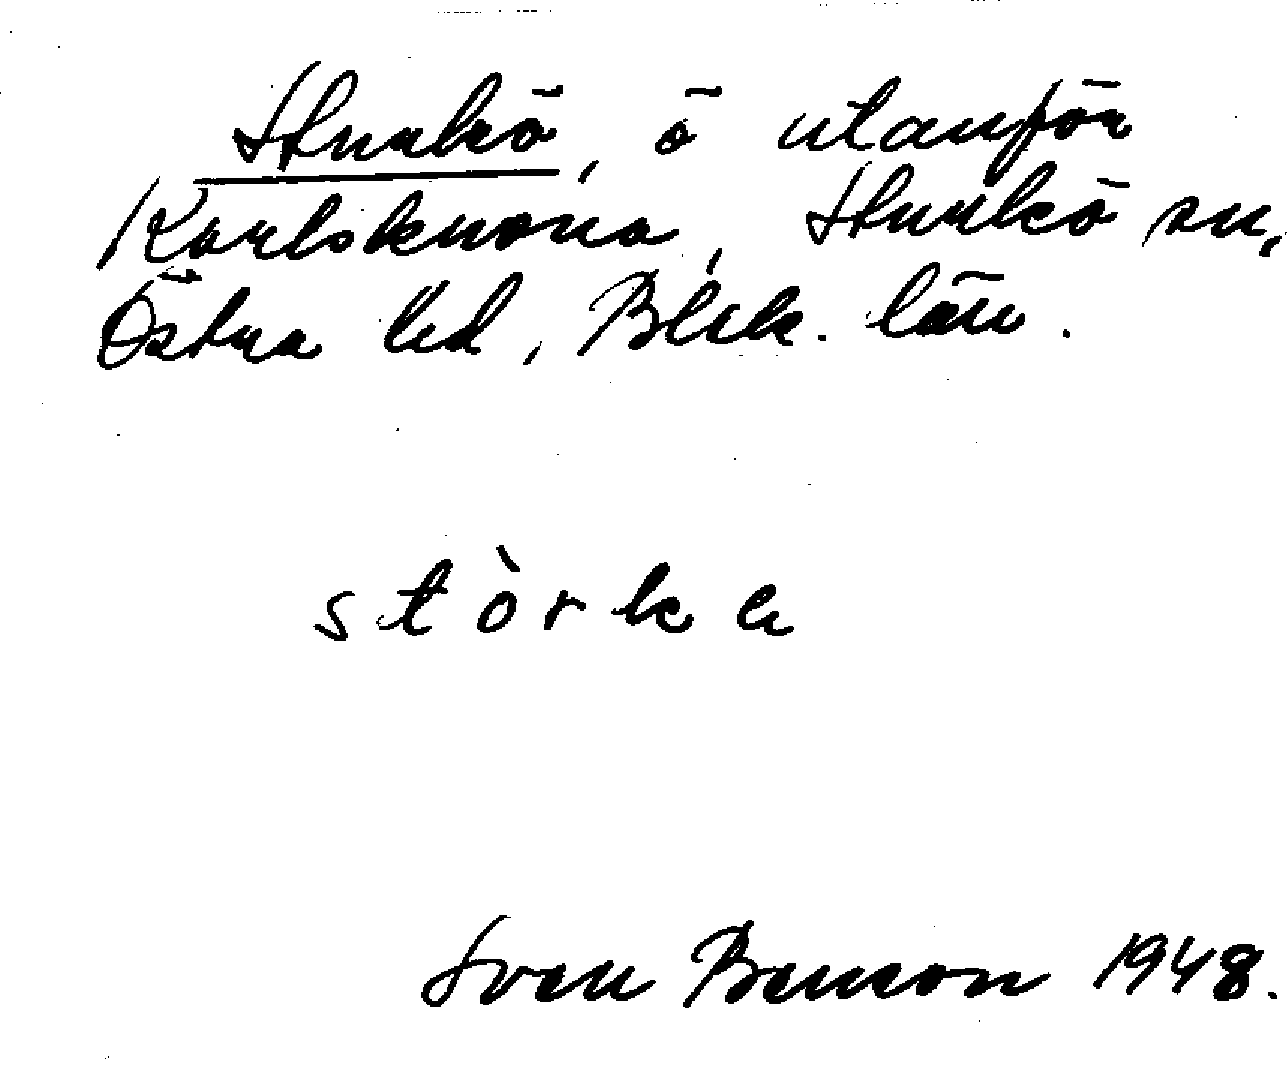 Sturkö, ö utanför
Karlskrona, Sturkö sn,
Östra hd, Blek. län.
stòrkə
Sven Benson 1948.